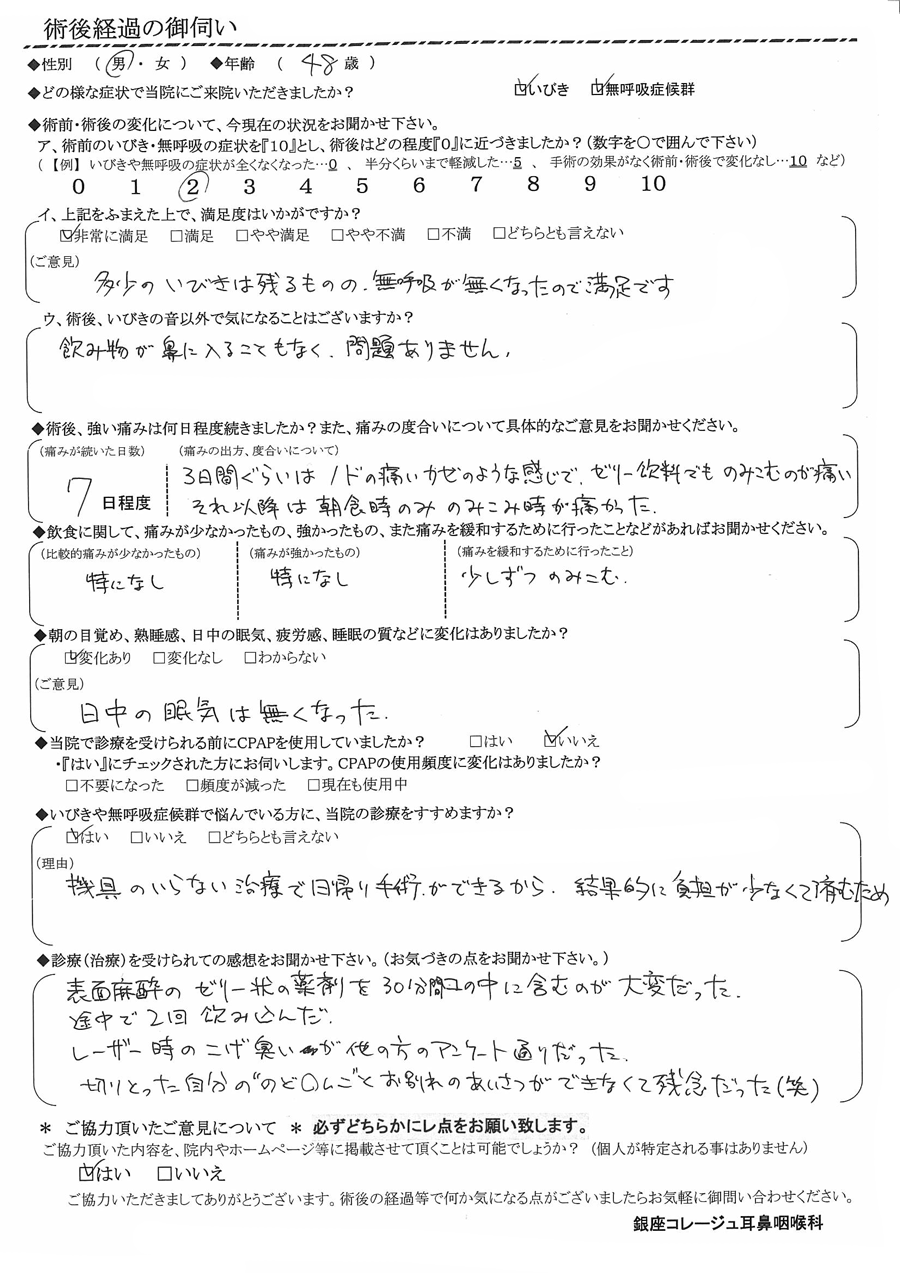 術後経過の御伺い
◆性別 （ 男 ・ 女 ） ◆年齢 （ 48 歳 ）
◆どの様な症状で当院にご来院いただきましたか？ ☑いびき ☑無呼吸症候群
◆術前・術後の変化について、今現在の状況をお聞かせ下さい。
ア、術前のいびき・無呼吸の症状を『10』とし、術後はどの程度『0』に近づきましたか？（数字を○で囲んで下さい）
（【例】いびきや無呼吸の症状が全くなくなった…0 、 半分くらいまで軽減した…5 、 手術の効果がなく術前・術後で変化なし…10 など）
0 1 2 3 4 5 6 7 8 9 10
イ、上記をふまえた上で、満足度はいかがですか？
☑非常に満足 □満足 □やや満足 □やや不満 □不満 □どちらとも言えない
（ご意見）
多少のいびきは残るものの、無呼吸が無くなったので満足です
ウ、術後、いびきの音以外で気になることはございますか？
飲み物が鼻に入ることもなく、問題ありません。
◆術後、強い痛みは何日程度続きましたか？また、痛みの度合いについて具体的なご意見をお聞かせください。
（痛みが続いた日数） （痛みの出方、度合いについて）
3日間ぐらいは ノドの痛いかぜのような感じで、ゼリー飲料でも のみこむのが痛い
7 日程度 それ以降は 朝食時のみ のみこみ時が痛かった.
◆飲食に関して、痛みが少なかったもの、強かったもの、また痛みを緩和するために行ったことなどがあればお聞かせください。
（比較的痛みが少なかったもの） （痛みが強かったもの） （痛みを緩和するために行ったこと）
特になし 特になし 少しずつ のみこむ.
◆朝の目覚め、熟睡感、日中の眠気、疲労感、睡眠の質などに変化はありましたか？
☑変化あり □変化なし □わからない
（ご意見）
日中の眠気は無くなった.
◆当院で診療を受けられる前にCPAPを使用していましたか？ □はい ☑いいえ
・『はい』にチェックされた方にお伺いします。CPAPの使用頻度に変化はありましたか？
□不要になった □頻度が減った □現在も使用中
◆いびきや無呼吸症候群で悩んでいる方に、当院の診療をすすめますか？
☑はい □いいえ □どちらとも言えない
（理由）
機具のいらない治療で日帰り手術ができるから. 結果的に負担が少なくて済むため
◆診療（治療）を受けられての感想をお聞かせ下さい。（お気づきの点をお聞かせ下さい。）
表面麻酔のゼリー状の薬剤を30分間口の中に含むのが大変だった.
途中で2回飲み込んだ.
レーザー時のこげ臭いが他の方のアンケート通りだった.
切りとった自分の“のど〇んこ”とお別れのあいさつができなくて残念だった（笑）
＊ ご協力頂いたご意見について ＊ 必ずどちらかにレ点をお願い致します。
ご協力頂いた内容を、院内やホームページ等に掲載させて頂くことは可能でしょうか？（個人が特定される事はありません）
☑はい □いいえ
ご協力いただきましてありがとうございます。術後の経過等で何か気になる点がございましたらお気軽に御問い合わせください。
銀座コレージュ耳鼻咽喉科